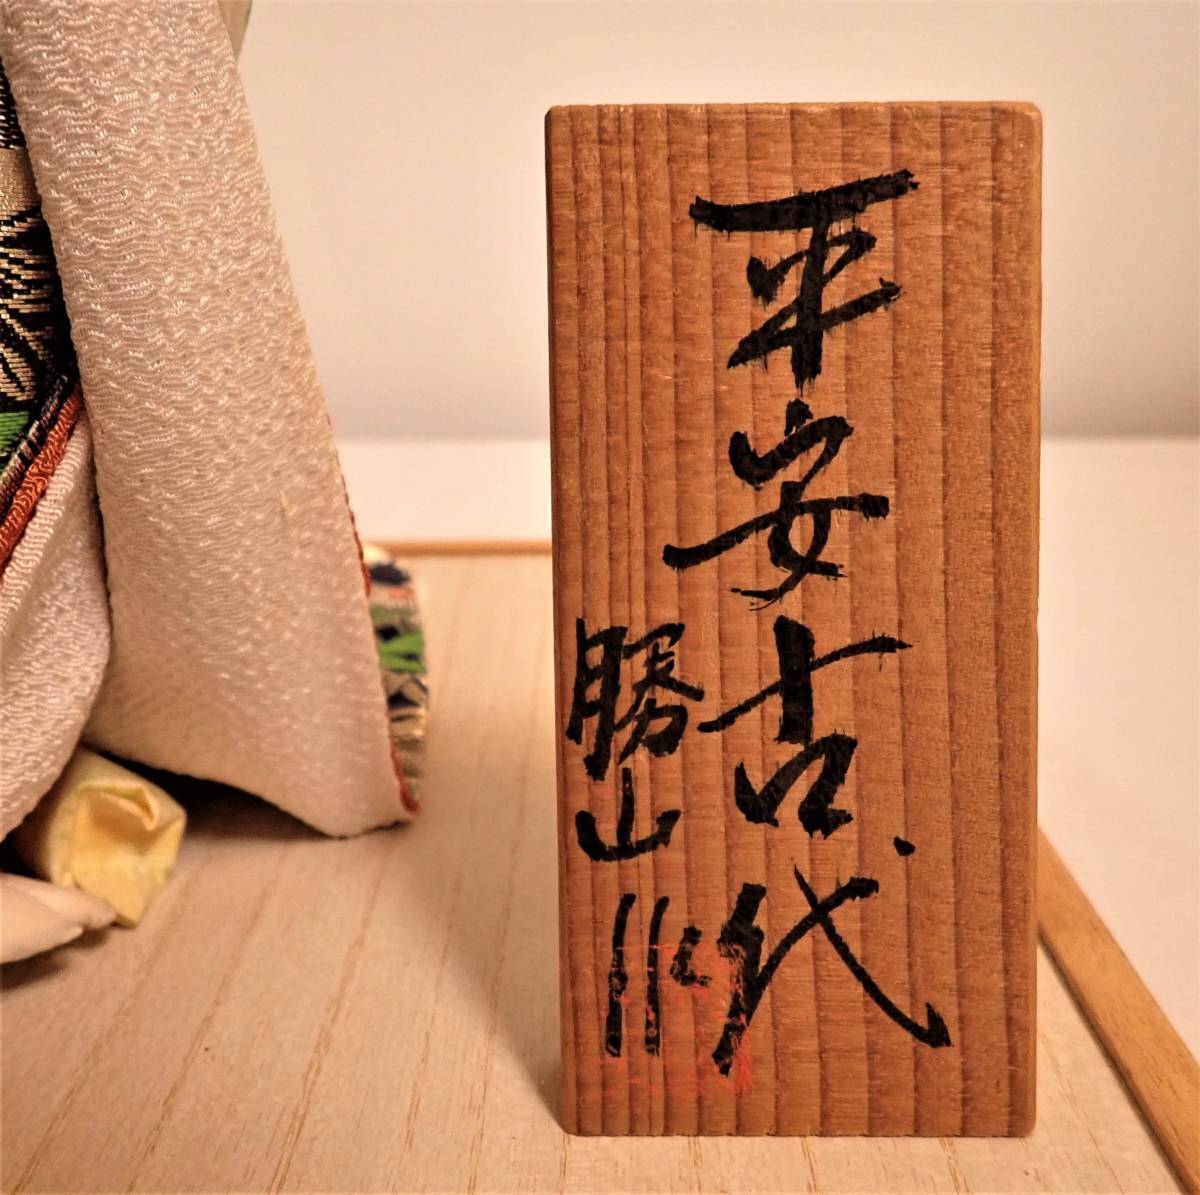 平安古代
勝山